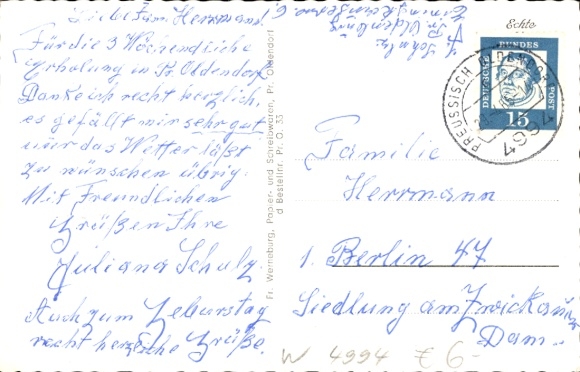 Liebe Fam. Herrmann!
Für die 3 Wochendliche
Erholung in Pr. Oldendorf
Danke ich recht herzlich,
es gefällt mir sehr gut
nur das Wetter läßt
zu wünschen übrig.
Mit Freundlichen
Grüßen Ihre
Juliana Schulz.
Auch zum Geburstag
recht herzliche Grüße.
J. Schulz
Pr. Oldendorf
Fr. Werneburg, Papier- und Schreibwaren, Pr. Oldendorf
d Bestellnr. Pr. O. 33
Echte
DEUTSCHE BUNDESPOST
15
PREUSSISCH OLDENDORF
4994
Familie
Herrmann
1. Berlin 47
Siedlung am Zwickauer
Damm
W 4994 € 6-